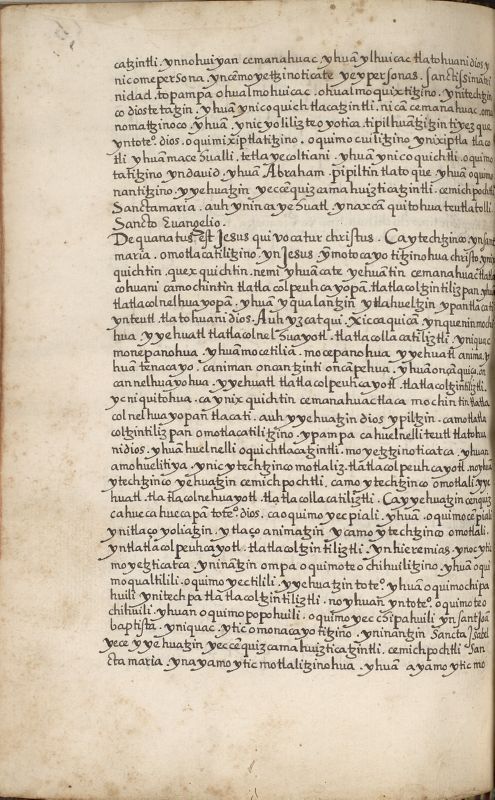 catzintli. ynnohuiyan cemanahuac, yhuā ylhuicac tlatohuani dios y
nicomepersona. yncēmoyetzinoticate yeypersonas. sanctissimatri
nidad. topampa ohualmohuicac. ohualmoquixtitzino. ynitechtzin
co diostetatzin. yhuā ynicoquichtlacatzintli. nicā cemanahuac. omo
nomatzinoco. yhuā. ynicyolilizteoyotica. tipilhuātzitzin tiyezque
yntote.º dios. oquimixiptlatitzino. oquimocuilitzino ynixiptla tlaco
tli yhuāmacehualli. tetlayecoltiani. yhuā ynicoquichtli. oquimo
tatitzino yndavid. yhuā Abraham. pipiltin tlatoque. yhuā oquimo
nantitzino. yyehuatzin yeccēquizcamahuizticatzintli. cemichpochtli
Sanctamaria. auh ynin cayehuatl ynaxcā quitohua teutlatolli.
Sancto Euangelio.
De qua natus est Jesus qui vocatur christus. Caytechtzinco ynsant
maria. omotlacatilitzino ynJesus. ȳmotocayotitzinohua christo. ynix
quichtin. quexquichtin. nemi yhuā cate yehuātin cemanahuac tlatla
cohuani camochintin tlatlacolpeuhcayopā. tlatlacoltzintilizpan. yhuā
tlatlacolnelhuayopā. yhuā yqualantzin ytlahueltzin ypan tlacati
ynteutl. tlatohuani dios. Auh yzcatqui. xicca quicā ynqueninmochi
hua. yyehuatl tlatlacolnelhuayotl. tlatlacollacatiliztli. yniquac
monepanohua. yhuāmocetilia. mocepanohua. yyehuatl anima. y
huā tenacayo. caniman oncantzinti oncāpehua. yhuāoncāquiça. on
can nelhuayohua. yyehuatl tlatlacolpeuhcayotl. tlatlacoltzintiliztli.
yc niquitohua. caynixquichtin cemanahuac tlaca mochintin tlatla
colnelhuayopan tlacati. auh yyehuatzin dios ypiltzin. camotlatla
coltzintilizpan omotlacatilitzino. ypampa cahuelnelli teutl tlatohua
nidios. yhuā huelnelli oquichtlacatzintli. moyetzinoticatca. yhuan
amohuelitiya. ynic ytechtzinco motlaliz. tlātlacolpeuhcayotl. noyhuā
ytechtzinco yyehuatzin cemichpochtli. camo ytechtzinco omotlali yye
huatl. tlatlacolnehuayotl. tlatlacollacatiliztli. Cayyehuatzin cenquiz
cahuecahuecapā tote.º dios. caoquimoyecpiali. yhuā. oquimocēpiali
ynitlaçoyoliatzin. ytlaçoanimatzin ycamo ytechtzinco omotlali.
yntlatlacolpeuhcayotl. tlatlacoltzintiliztli. ynhieremias. ynoc ytic
moyetzticatca. yninātzin ompa oquimoteochihuilitzino. yhuā oqui
moqualtilili. oquimoyectilili. yyehuatzin tote.º yhuā oquimochipa
huili ynitechpa tlātlacoltzintiliztli. noyhuan yntote.º. oquimoteo
chihuili. yhuan oquimopopohuili. oquimoyecchipahuili ynsantJoā
baptistā. yniquac. yticomonacayotitzino. yninantzin Sancta Isabel
yece yyehuatzin yeccēquizcamahuizticatzintli. cemichpochtli San
cta maria. ynayamo ytic motlalitzinohua. yhuan ayamo yticmo